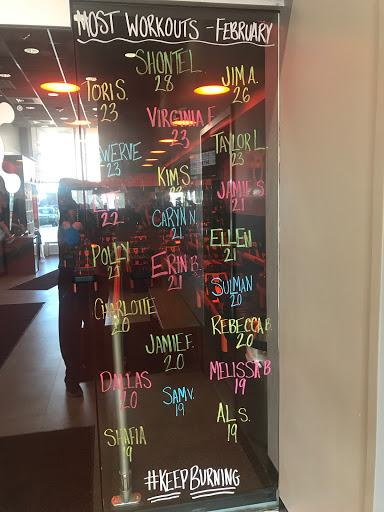 MOST WORKOUTS - FEBRUARY
SHONTEL
28
TORI S.
23
JIM A.
26
VIRGINIA F.
23
SWERVE
23
TAYLOR L.
23
KIM S.
22
JAMIE S
21
22
CARYN N.
21
ELLEN
21
POLLY
21
ERIN B.
21
SULMAN
20
CHARLOTTE
20
REBECCA B.
20
JAMIE F.
20
DALLAS
20
MELISSA B
19
SAM V.
19
AL S.
19
SHAFIA
19
#KEEPBURNING